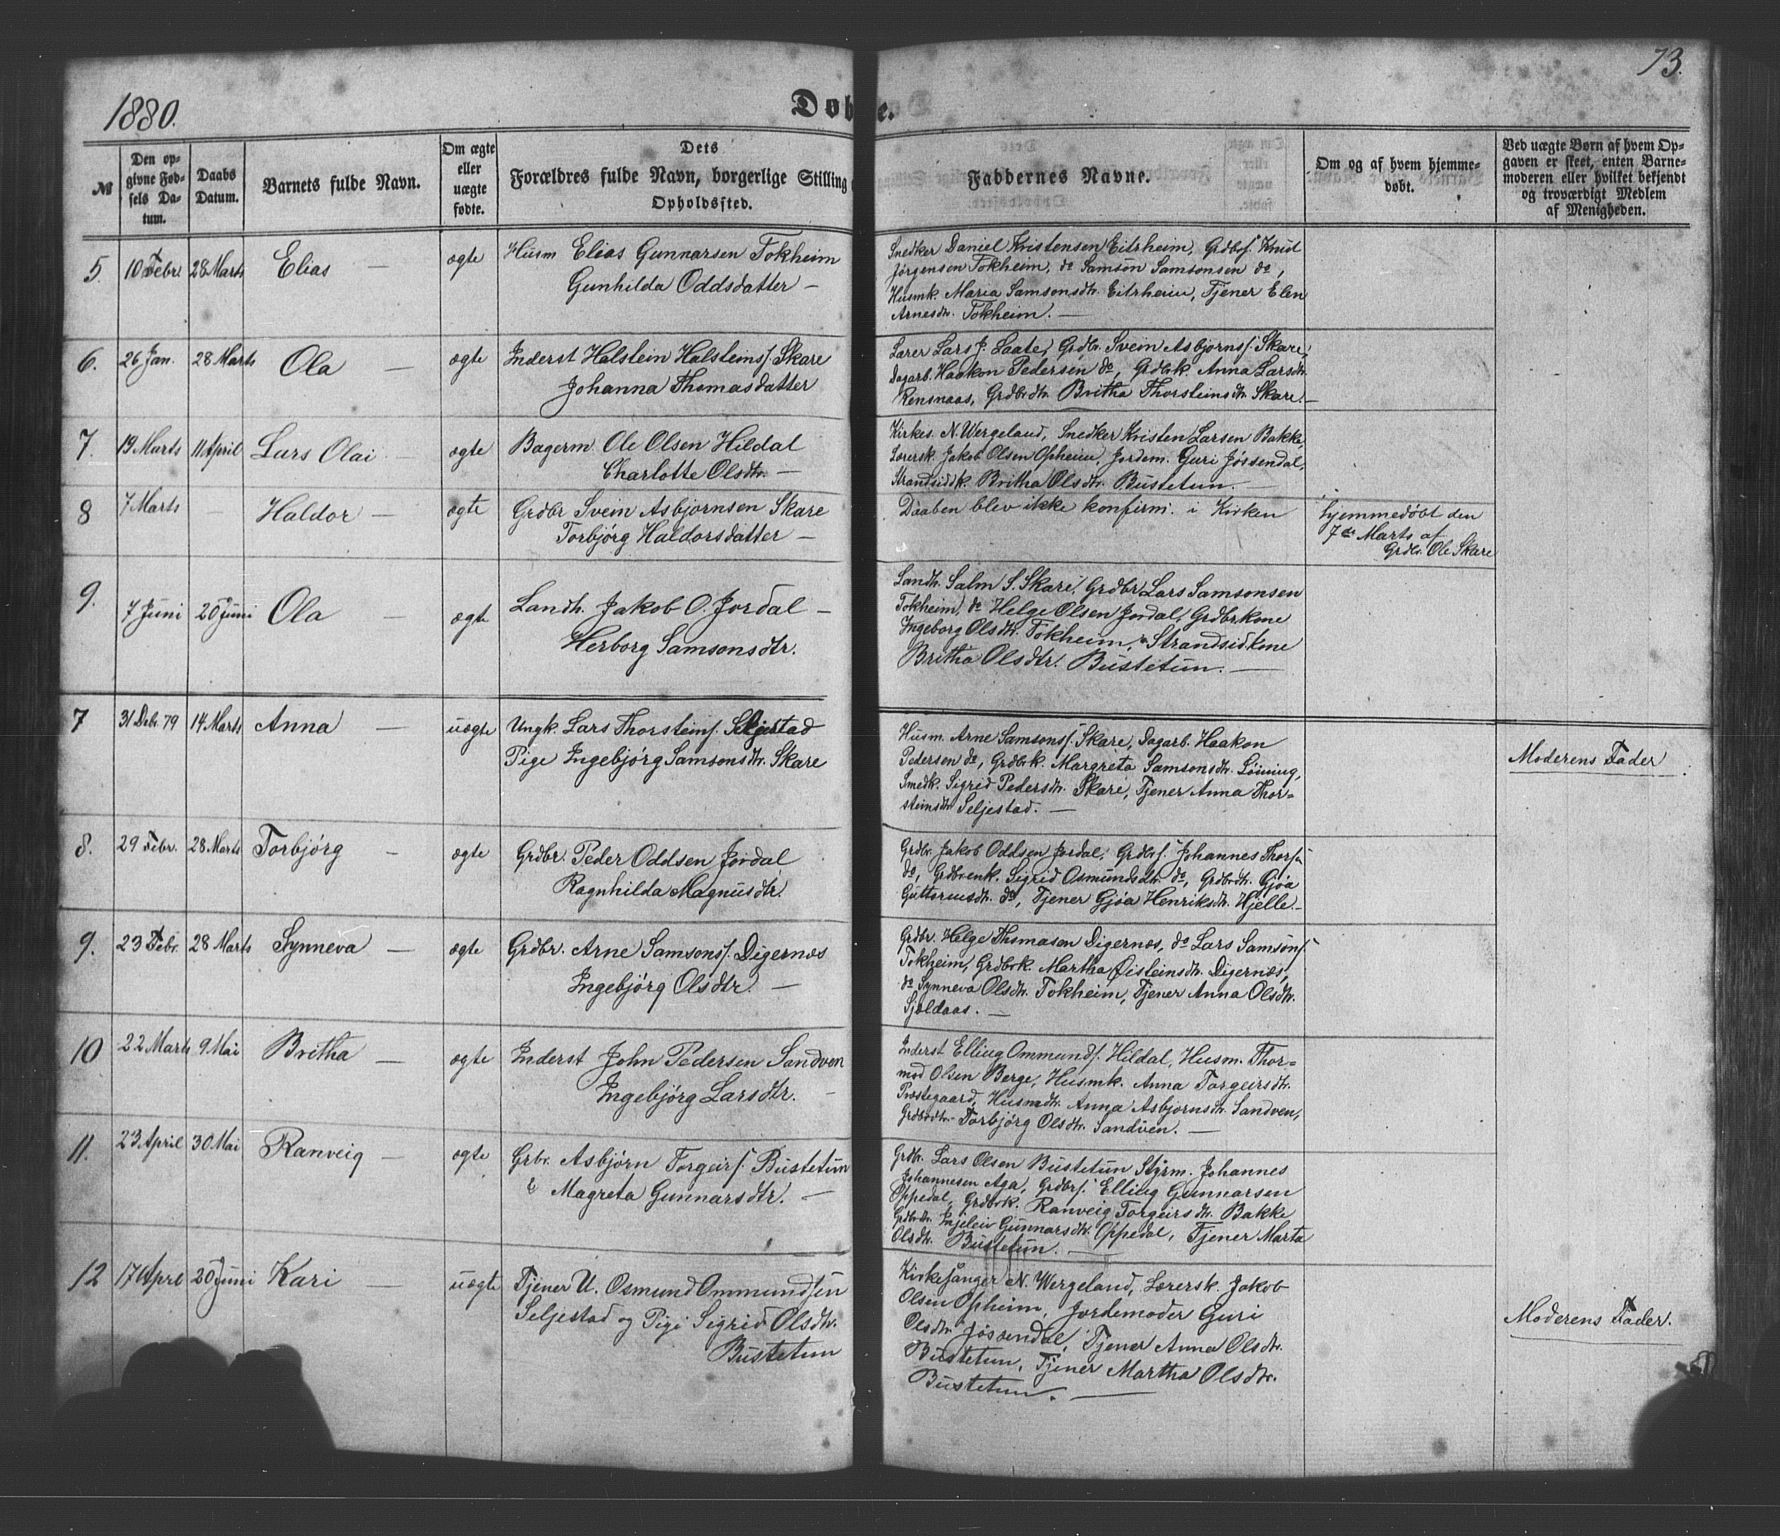 73.
1880.
Døbte.
№
Den opgivne Fødsels Datum.
Daabs Datum.
Barnets fulde Navn.
Om ægte eller uægte fødte.
Dets Forældres fulde Navn, borgerlige Stilling
Opholdssted.
Faddernes Navne.
Om og af hvem hjemmedøbt.
Ved uægte Børn af hvem Opgaven er skeet, enten Barnemoderen eller hvilket bekjendt og troværdigt Medlem af Menigheden.
5. 10 Febr 28 Marts Elias — ægte Husm Elias Gunnarsen Tokheim
Gunhilda Oddsdatter —
Snedker Daniel Kristensen Eitrheim, Grdbrs. Knut
Jørgensen Tokheim, do Samson Samsonsen do,
Husmk. Maria Samsonsdtr. Eitrheim, Tjener Elen
Arnesdtr. Tokheim. —
6. 26 Jan. 28 Marts Ola — ægte Inderst Halstein Halsteins. Skare
Johanna Thomasdatter
Lærer Lars J. Laate, Grdbr. Svein Asbjørns. Skare,
Dagarb. Haakon Pedersen do, Grdbrk Anna Larsdtr.
Rensnaas, Grdbrdtr. Britha Thorsteinsdtr. Skare. —
7. 19 Marts 11 April Lars Olai — ægte Bagerm. Ole Olsen Hildal
Charlotte Olsdtr. —
Kirkes. N. Wergeland, Snedker Kristen Larsen Bakke
Lærersk. Jakob Olsen Opheim, Jordem. Guri Jøssendal,
Strandsiddk. Britha Olsdtr. Bustetun. —
8 7 Marts Haldor — ægte Grdbr Svein Asbjørnsen Skare
Torbjørg Haldorsdatter —
Daaben blev ikke konfirm. i Kirken
Hjemmedøbt den
7de Marts af
Grdbr. Ole Skare
9. 7 Juni 20 Juni Ola — ægte Landh. Jakob O. Jordal —
Herborg Samsonsdtr.
Landh. Salm S. Skare, Grdbr Lars Samsonsen
Tokheim, do Helge Olsen Jordal, Grdbrkone
Ingeborg Olsdtr. Tokheim, Strandsidkone
Britha Olsdtr. Bustetun. —
7 31 Debr 79 14 Marts Anna — uægte Ungk. Lars Thorsteins. Seljestad
Pige Ingebjørg Samsonsdtr. Skare
Husm. Arne Samsons. Skare, Dagarb. Haakon
Pedersen do, Grdbrk. Margreta Samsonsdtr. Løining,
Smedk. Sigrid Pedersdtr. Skare, Tjener Anna Thor=
steinsdtr Seljestad. —
Moderens Fader
8. 29 Febr. 28 Marts Torbjørg — ægte Grdbr. Peder Oddsen Jordal
Ragnhilda Magnusdtr.
Grdbr. Jakob Oddsen Jordal, Grdbrs. Johannes Thors.
do, Grdbrenk. Sigrid Osmundsdtr. do, Grdbrdtr. Gjøa
Guttormsdtr. do, Tjener Gjøa Henriksdtr. Hjelle. —
9. 23 Febr. 28 Marts Synneva — ægte Grdbr. Arne Samsons. Digernæs
Ingebjørg Olsdtr. —
Grdbr. Helge Thomasen Digernæs, do Lars Samsons.
Tokheim, Grdbrk. Martha Øisteinsdtr. Digernæs,
do Synneva Olsdtr. Tokheim, Tjener Anna Olsdtr.
Sjoldaas. —
10 22 Marts 9 Mai Britha — ægte Inderst John Pedersen Sandven
Ingebjørg Larsdtr. —
Inderst Elling Ommunds. Hildal, Husm. Thor=
mod Olsen Berge, Husmk. Anna Torgeirsdtr.
Præstegaard, Husmdtr. Anna Asbjørnsdtr. Sandven,
Grdbrdtr. Torbjørg Olsdtr. Sandven. —
11. 23 April 30 Mai Ranveig — ægte Grbr. Asbjørn Torgeirs. Bustetun
& Magreta Gunnarsdtr. —
Grdbr. Lars Olsen Bustetun Styrm. Johannes
Johannesen Aga, Grdbrs. Elling Gunnarsen
Oppedal, Grdbrk. Ranveig Torgeirsdtr. Bakke
Grdbrdtr. Injeleiv Gunnarsdtr. Oppedal, Tjener Marta
Olsdtr. Bustetun. —
12 17 April 20 Juni Kari — uægte Tjener U. Osmund Ommundsen
Seljestad og Pige Sigrid Olsdtr.
Bustetun
Kirkesånger N. Wergeland, Lærersk. Jakob
Olsen Opheim, Jordemoder Guri
Olsdtr. Jøssendal, Tjener Anna Olsdtr.
Bustetun, Tjener Martha Olsdtr.
Bustetun. —
Moderens Fader.